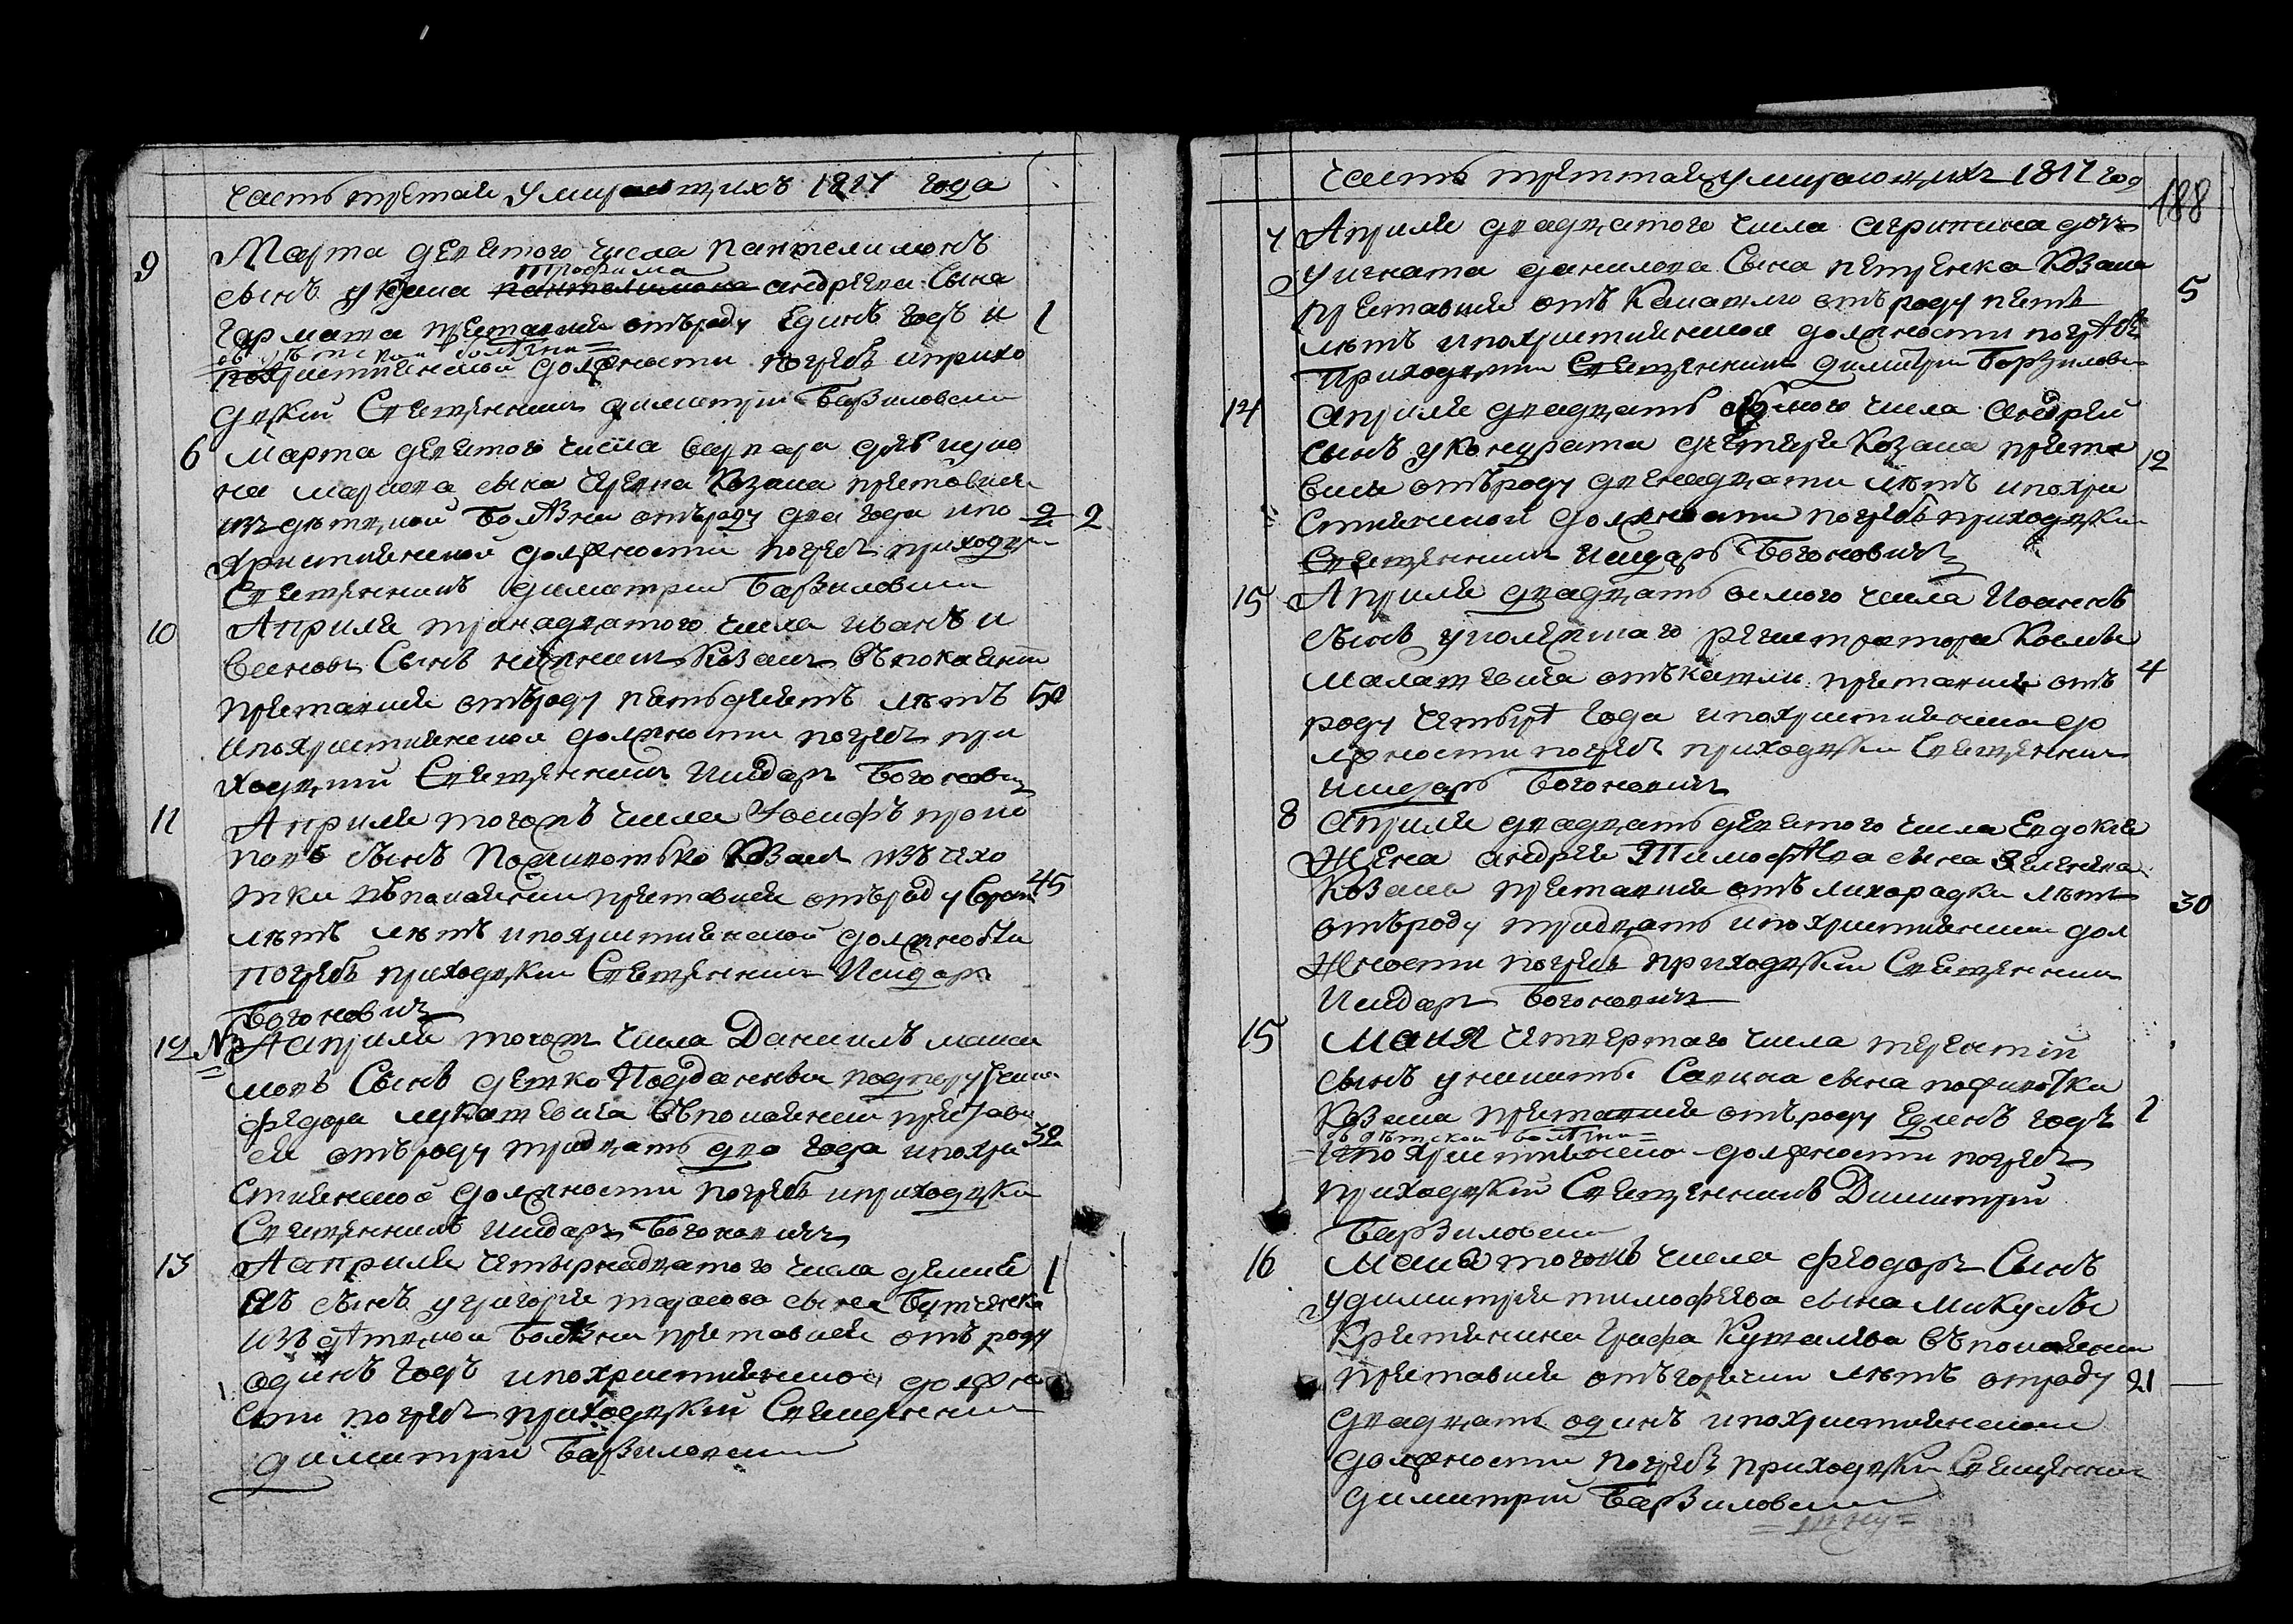 Часть третая Умирающихъ 1817 года
9 Марта девятого числа Пантелимонъ
сынъ у козака Трофима Пантелимона андреева Сына
Гармаша преставися отъроду Единъ Годъ и 1
въ детской болезни
похристиянской должности погребъ иприхо
дский Священникъ димитрий Барзиловски
6 Марта девятого числа
на маркова сына Козака преставися
изъ детской болезни отъроду два года ипо 2 2
християнской должности погребъ приходски
Священникъ димитрий Барзиловски
10 Априля тринадцатого числа иванъ и
Сынъ Козакъ Съпокаяни
преставися отъроду петьдесятъ летъ 50
ипохристиянской должности погребъ при
ходский Священникъ Исидоръ Богонович
11 Априля тогожъ числа Иосифъ проко
повъ сынъ Козакъ изъ чхо
тки Съпокаянии преставися отъроду Сорокъ 45
летъ летъ ипохристиянской должности
погребъ приходски Священникъ Исидоръ
Богонович
12 № Априля тогожъ числа Даниилъ макси
мовъ Сынъ детко Подданный подпоручика
федора лукашевича Съпокаянии престави
ся отъроду тридцать два года ипохри 32
стиянской должности погребъ иприходски
Священникъ Исидоръ Богоновичъ
13 Априля четырнадцатого числа
сынъ у григория тарасова сына Бутенка 1
изъ детской болезни преставися отъ роду
одинъ годъ ипохристиянской должно
сти погребъ приходский Священник
димитрий Барзиловски
Часть треттая умирающихъ 1817 год 188
7 Априля двадцатого числа агрипина дочь
у игната данилова Сына петренка Козака 5
преставися отъ Кашлю отъроду пять
летъ ипохристиянской должности погребъ
Приходски Священникъ димитрий Барзилови
14 априля двадцать осмого числа андрей
сынъ у кондрата дегтяря Козака преста 12
вися отъроду двенадцати летъ ипохри
стиянской должности погребъ приходски
Священникъ исидоръ Богоновичъ
15 Априля двадцать осмого числа Иоаннъ
сынъ уколежшаго регистратора Космы
Малашевича отъкашли преставися отъ 4
роду четыре Года ипохристиянски до
лжности погребъ приходски Священник
исидоръ Богоновичъ
8 априля двадцать девятого числа Евдокия
Жена андрея Тимофеева сына
Козака преставися отъ лихорадки летъ 30
отъроду тридцать ипохристиянски дол
жности погребъ приходски Священник
Исидоръ Богоновичъ
15 Маия четвертого числа терентий
сынъ у никиты Савина сына
Козака преставися отъроду Единъ годъ 1
въ детской болезни
ипохристиянско должности погребъ
приходский Священникъ Димитрий
Барзиловски
16 Маия тогожъ числа федоръ Сынъ
у димитрия тимофеева сына Микулы
Крестянина Графа Кушелева Съпокаянии
преставися отъгорячки летъ отроду 21
двадцать одинъ ипохристиянской
должности погребъ приходски Священник
димитрий Барзиловски